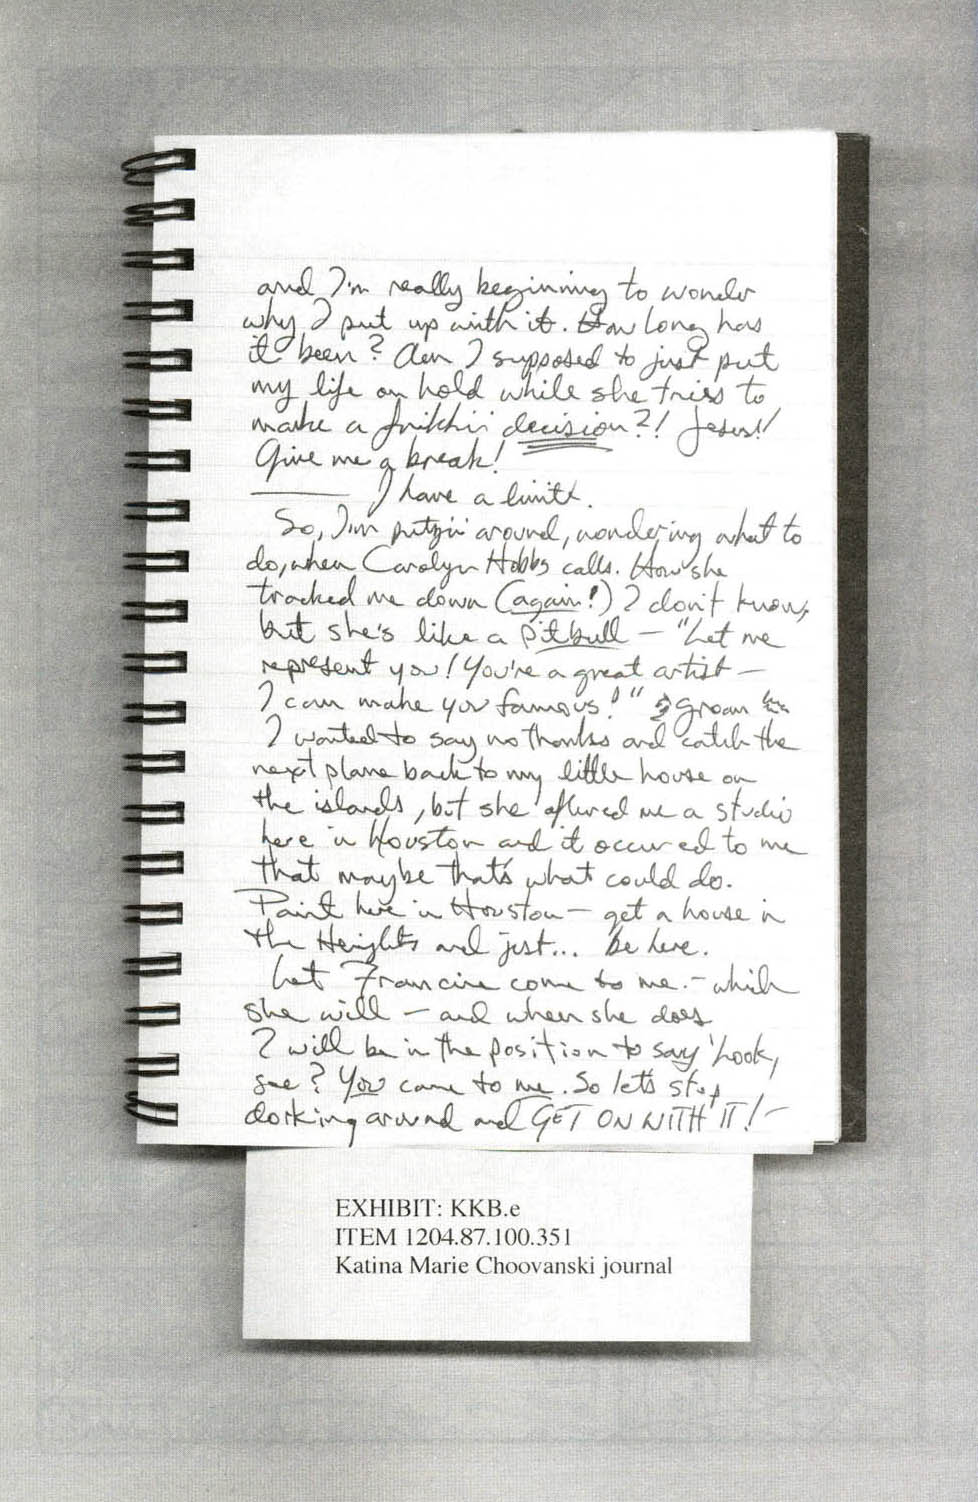 and I'm really beginning to wonder
why I put up with it. How long has
it been? Am I supposed to just put
my life on hold while she tries to
make a frikkin' decision?! Jesus!!
Give me a break!
I have a limit.
So, I'm putzin' around, wondering what to
do, when Carolyn Hobbs calls. How she
tracked me down (again!) I don't know,
but she's like a pitbull — "Let me
represent you! You're a great artist —
I can make you famous!" groan
I wanted to say no thanks and catch the
next plane back to my little house on
the islands, but she offered me a studio
here in Houston and it occured to me
that maybe that's what could do.
Paint here in Houston — get a house in
the Heights and just... be here.
Let Francine come to me. — which
she will — and when she does
I will be in the position to say 'Look,
see? You came to me. So let's stop
dorking around and GET ON WITH IT! —
EXHIBIT: KKB.e
ITEM 1204.87.100.351
Katina Marie Choovanski journal